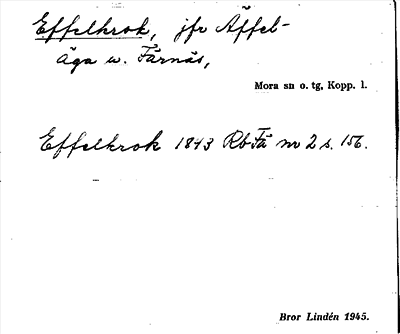 Effelkrok, jfr Äffel-
äga u. Färnäs,
Mora sn o. tg, Kopp. l.
Effelkrok 1843 Rb Fä nr 2 s. 156.
Bror Lindén 1945.